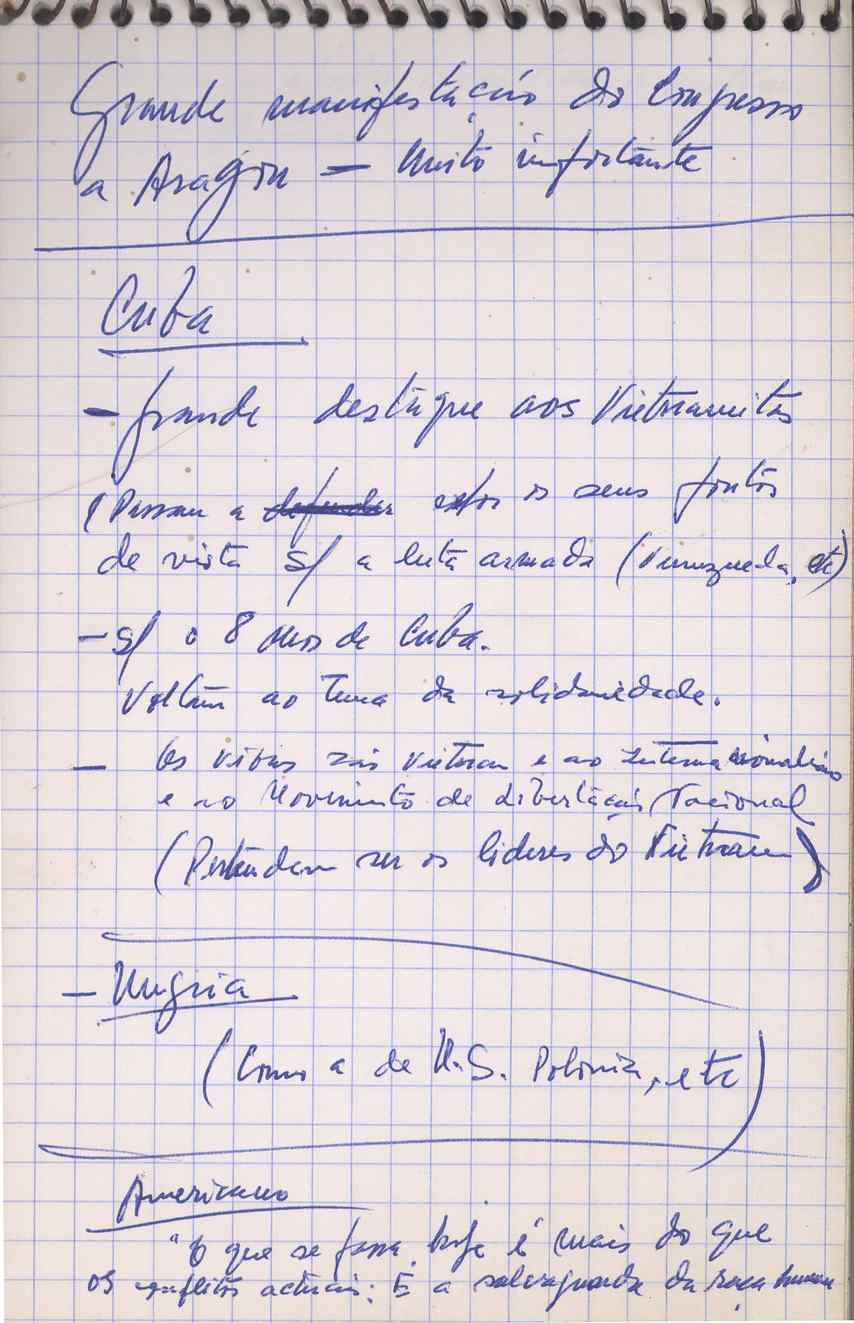 Grande manifestação do Congresso
a Aragon — Muito importante
Cuba
— Grande destaque aos Vietnamitas
(Passam a defender expor os seus pontos
de vista s/ a luta armada (Venezuela, etc)
— s/ o 8 anos de Cuba.
Voltam ao tema da solidariedade.
— Os vivas são Vietnam e ao Internacionalismo
e ao Movimento de Libertação Nacional
(Pretendem ser os líderes do Vietnam)
— Ungria
(Como a de U.S. Polonia, etc)
Americano
"O que se passa hoje é mais do que
os conflitos actuais: É a salvaguarda da raça humana